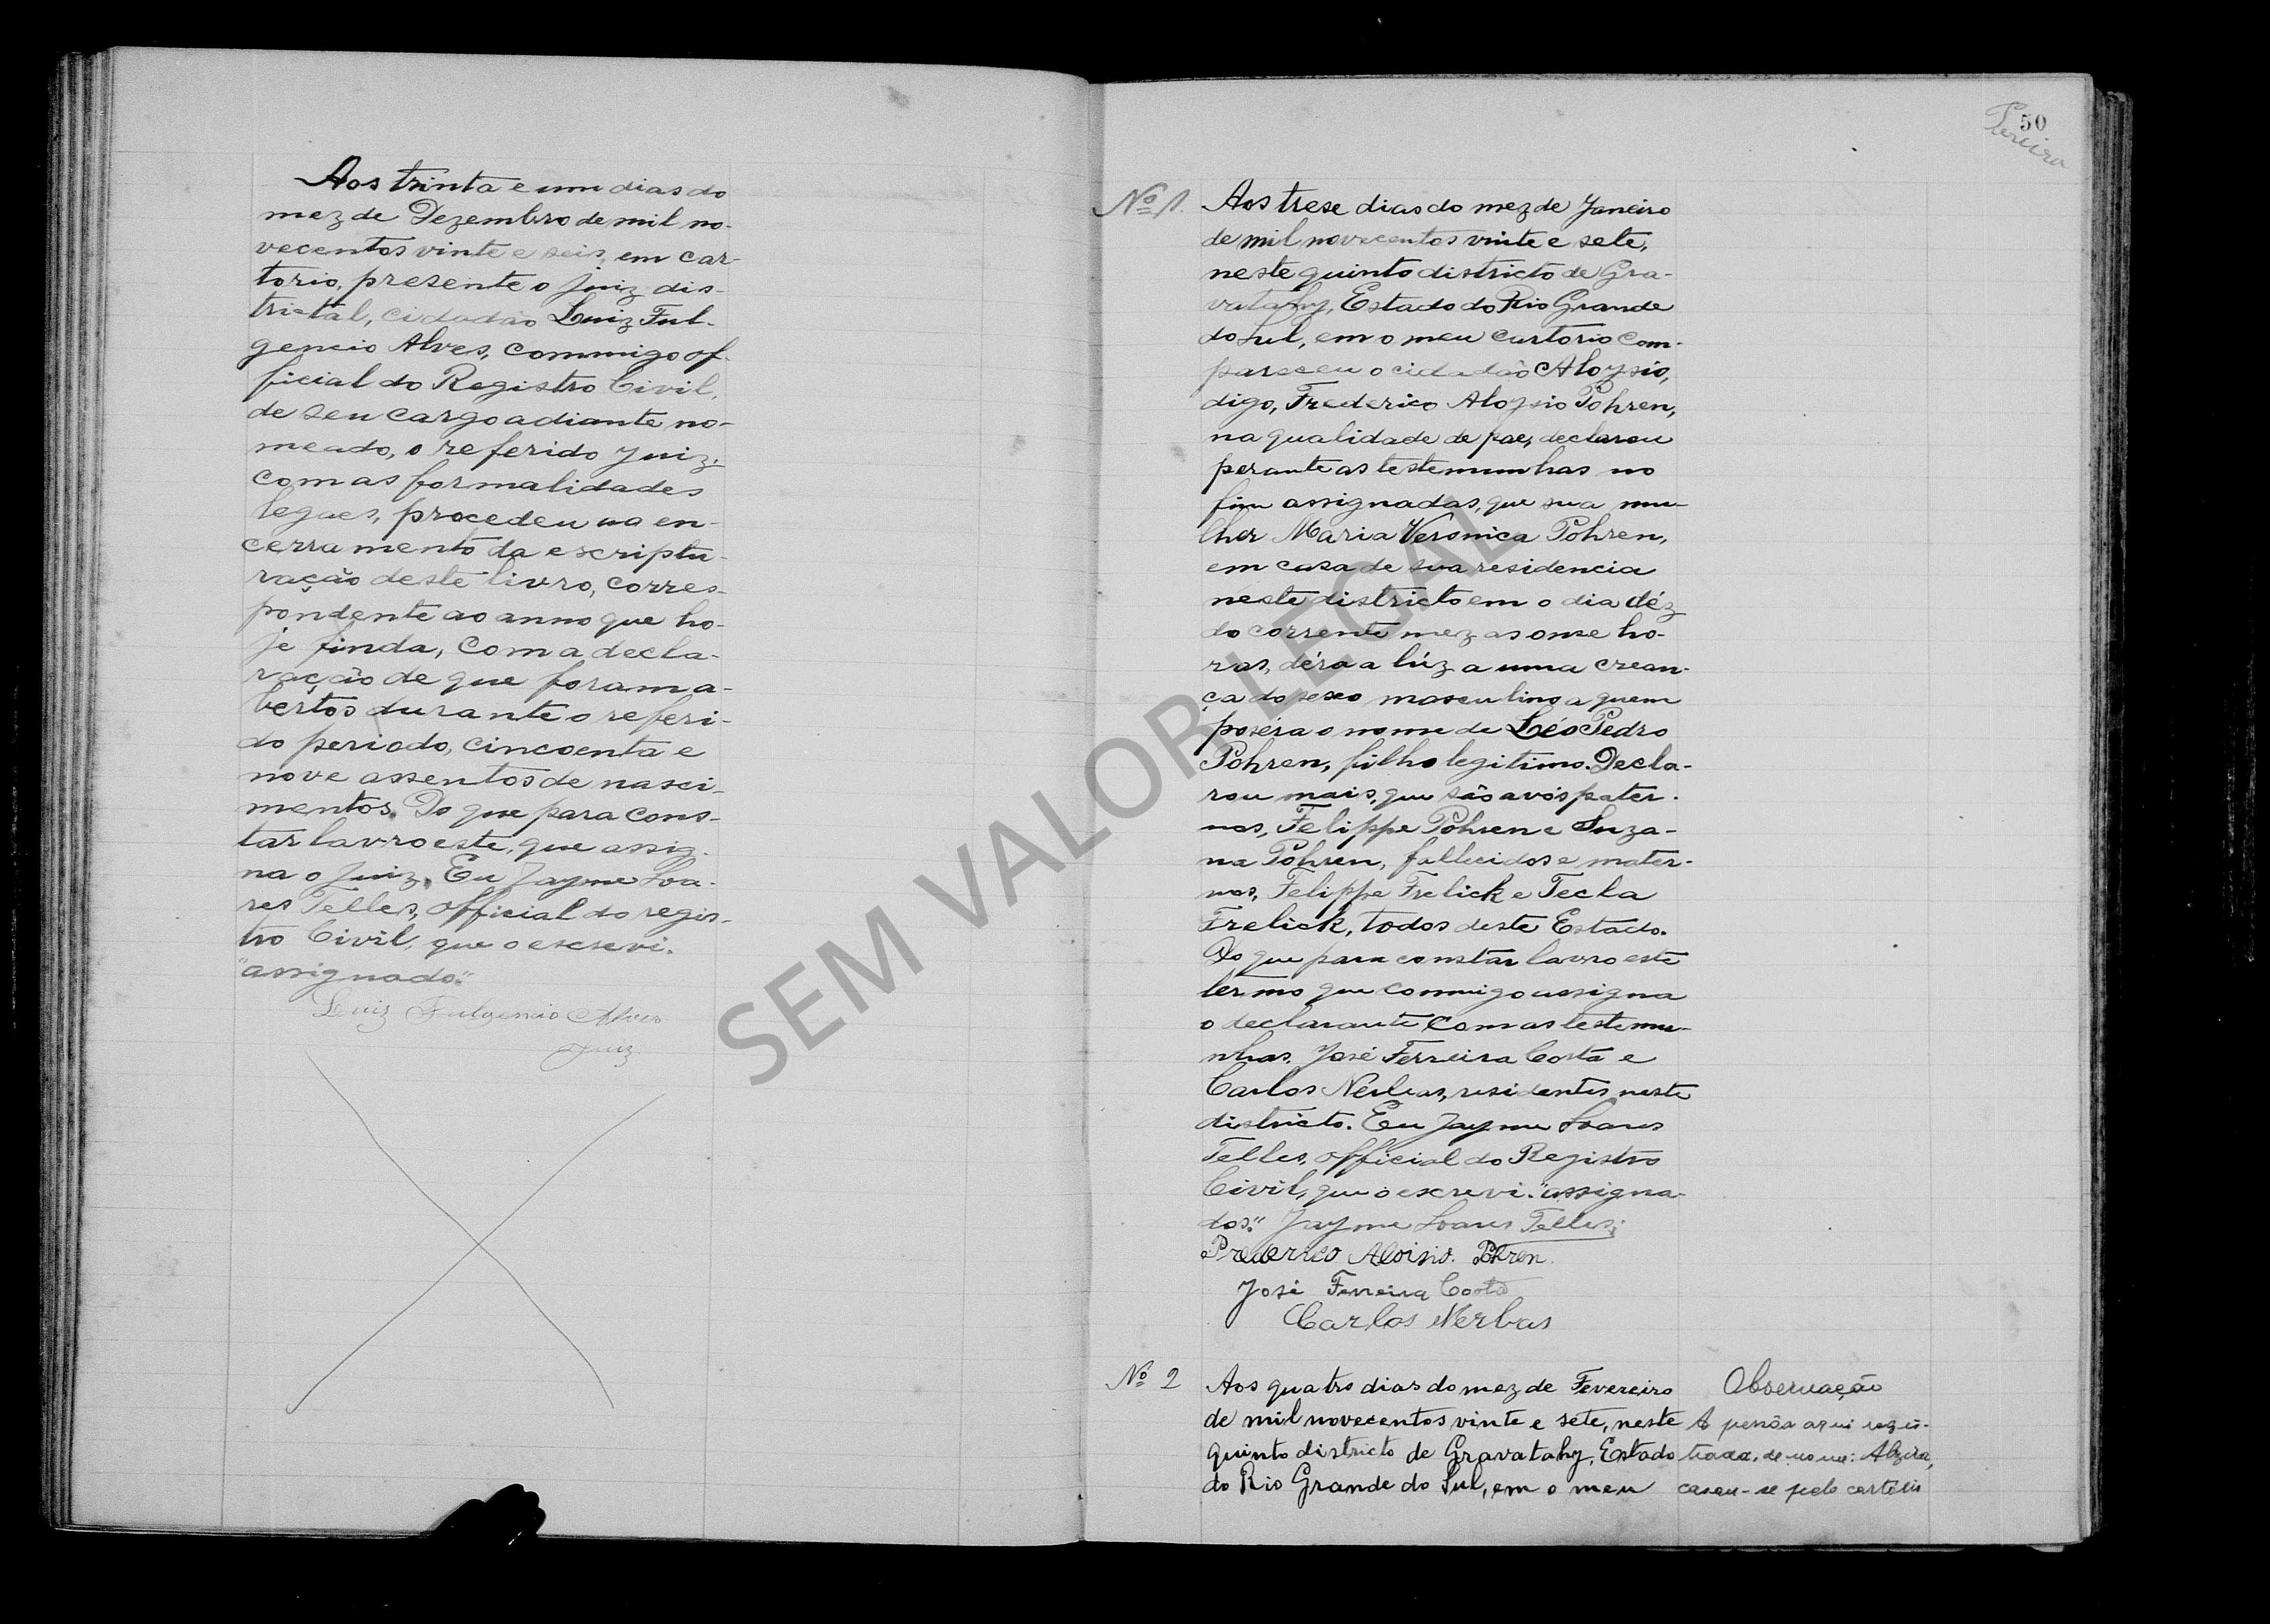 Aos trinta e um dias do
mez de Dezembro de mil no-
vecentos vinte e seis, em car-
torio, presente o juiz dis-
trictal, cidadão Luiz Ful-
gencio Alves, commigo of-
ficial do Registro Civil,
de seu cargo adiante no-
meado, o referido juiz,
com as formalidades
legaes, procedeu ao en-
cerramento da escriptu-
ração deste livro, corres-
pondente ao anno que ho-
je finda, com a decla-
ração de que foram a-
bertos durante o referi-
do periodo, cincoenta e
nove assentos de nasci-
mentos. Do que para cons-
tar lavro este, que assig-
na o Juiz. Eu Jayme Soa-
res Telles, official do regis-
tro Civil, que o escrevi.
"assignado."
Luiz Fulgencio Alves
Juiz
50
Pereira
Nº 1.
Aos trese dias do mez de Janeiro
de mil novecentos vinte e sete,
neste quinto districto de Gra-
vatahy, Estado do Rio Grande
do Sul, em o meu cartorio com-
pareseu o cidadão Aloysio,
digo, Frederico Aloysio Pohren,
na qualidade de pae, declarou
perante as testemunhas no
fim assignadas, que sua mu-
lher Maria Veronica Pohren,
em casa de sua residencia
neste districto em o dia déz
do corrente mez as onse ho-
ras, déra a lúz a uma crean-
ça do sexo masculino a quem
poséra o nome de Léo Pedro
Pohren, filho legitimo. Decla-
rou mais, que são avós pater-
nos, Felippe Pohren e Suza-
na Pohren, fallecidos e mater-
nos, Felippe Frelick e Tecla
Frelick, todos deste Estado.
Do que para constar lavro este
termo que commigo assigna
o declarante com as testemu-
nhas, José Ferreira Costa e
Carlos Nerbas, residentes neste
districto. Eu Jayme Soares
Telles, official do Registro
Civil, que o escrevi. "assigna-
dos." Jayme Soares Telles;
Frederico Aloisio. Pohren.
José Ferreira Costa
Carlos Nerbas
Nº 2
Aos quatro dias do mez de Fevereiro
de mil novecentos vinte e sete, neste
quinto districto de Gravatahy, Estado
do Rio Grande do Sul, em o meu
Observação
A pessôa aqui regis-
trada, de nome: Alzira,
casou-se pelo cartório
SEM VALOR LEGAL